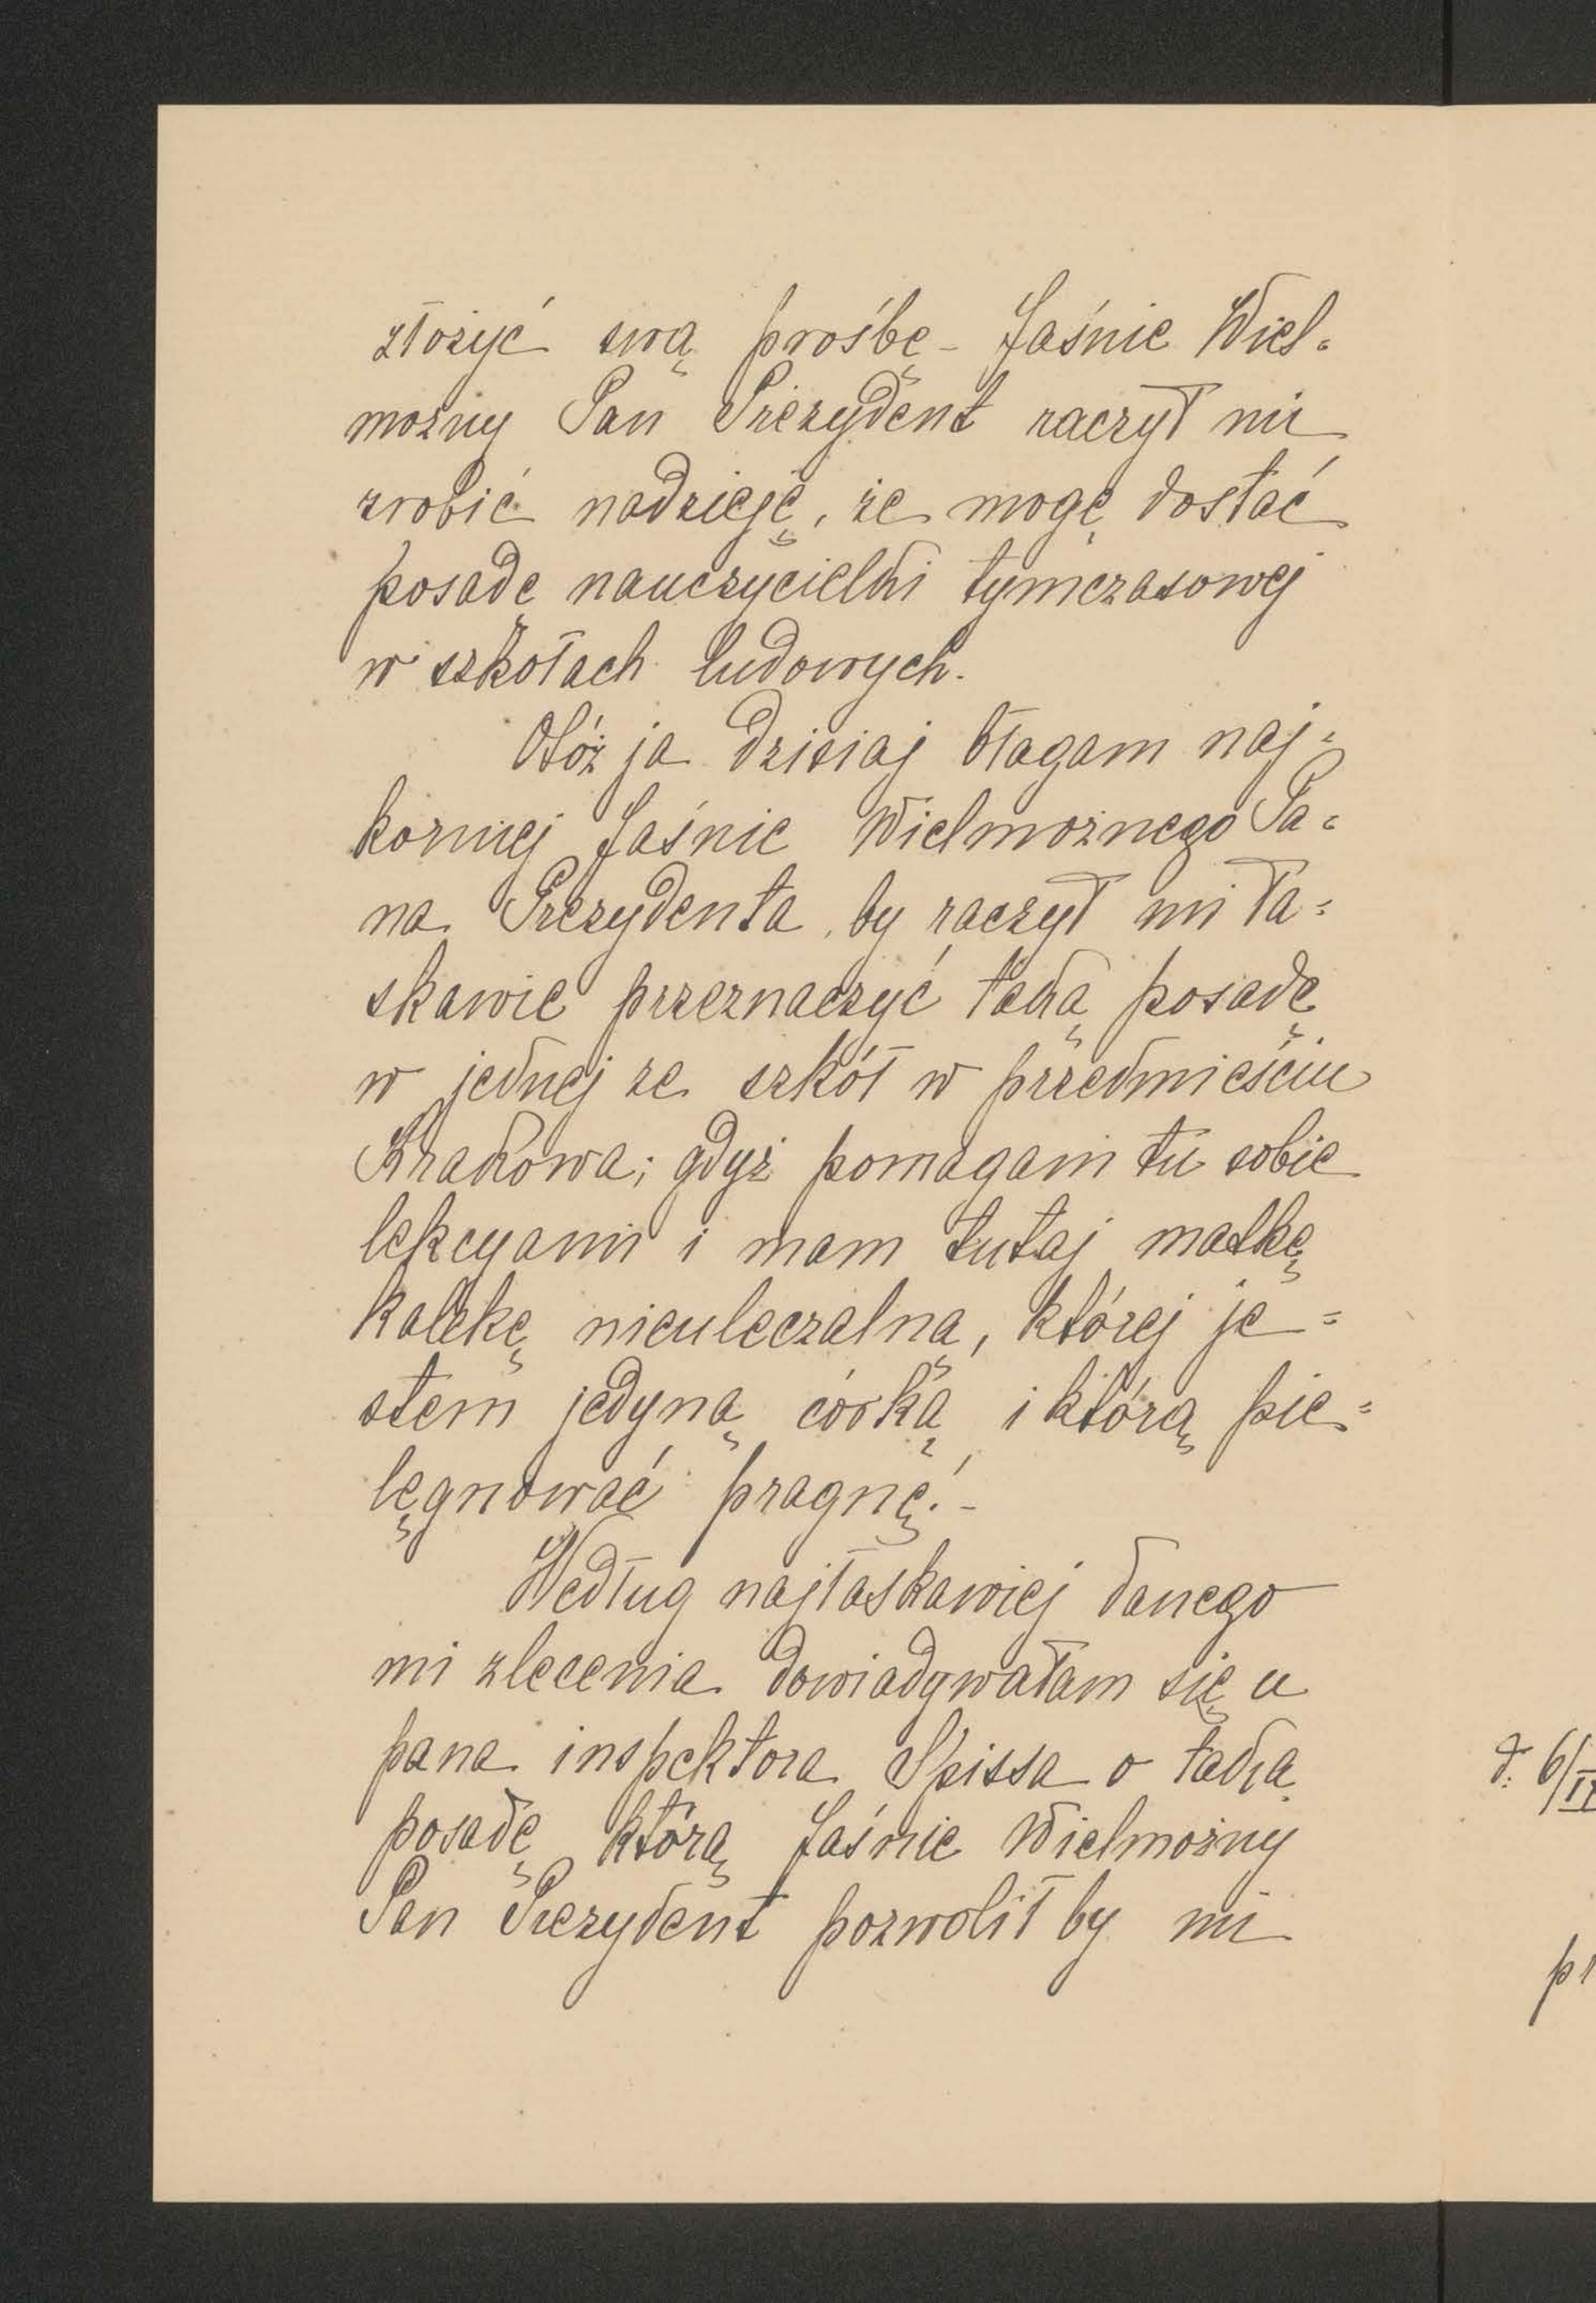 złożyć swą prośbę – Jaśnie Wiel=
możny Pan Prezydent raczył mi
zrobić nadzieję, że mogę dostać
posadę nauczycielki tymczasowej
w szkołach ludowych.
Otóż ja dzisiaj błagam naj=
korniej Jaśnie Wielmożnego Pa=
na Prezydenta, by raczył mi ła=
skawie przeznaczyć taką posadę
w jednej ze szkół w przedmieściu
Krakowa; gdyż pomagam tu sobie
lekcyami i mam tutaj matkę
kalekę nieuleczalną, której je=
stem jedyną córką i którą pie=
lęgnować pragnę! –
Według najłaskawiej danego
mi zlecenia dowiadywałam się u
pana inspektora Spissa o taką
posadę którą Jaśnie Wielmożny
Pan Prezydent pozwolił by mi
d. 6/II
pr